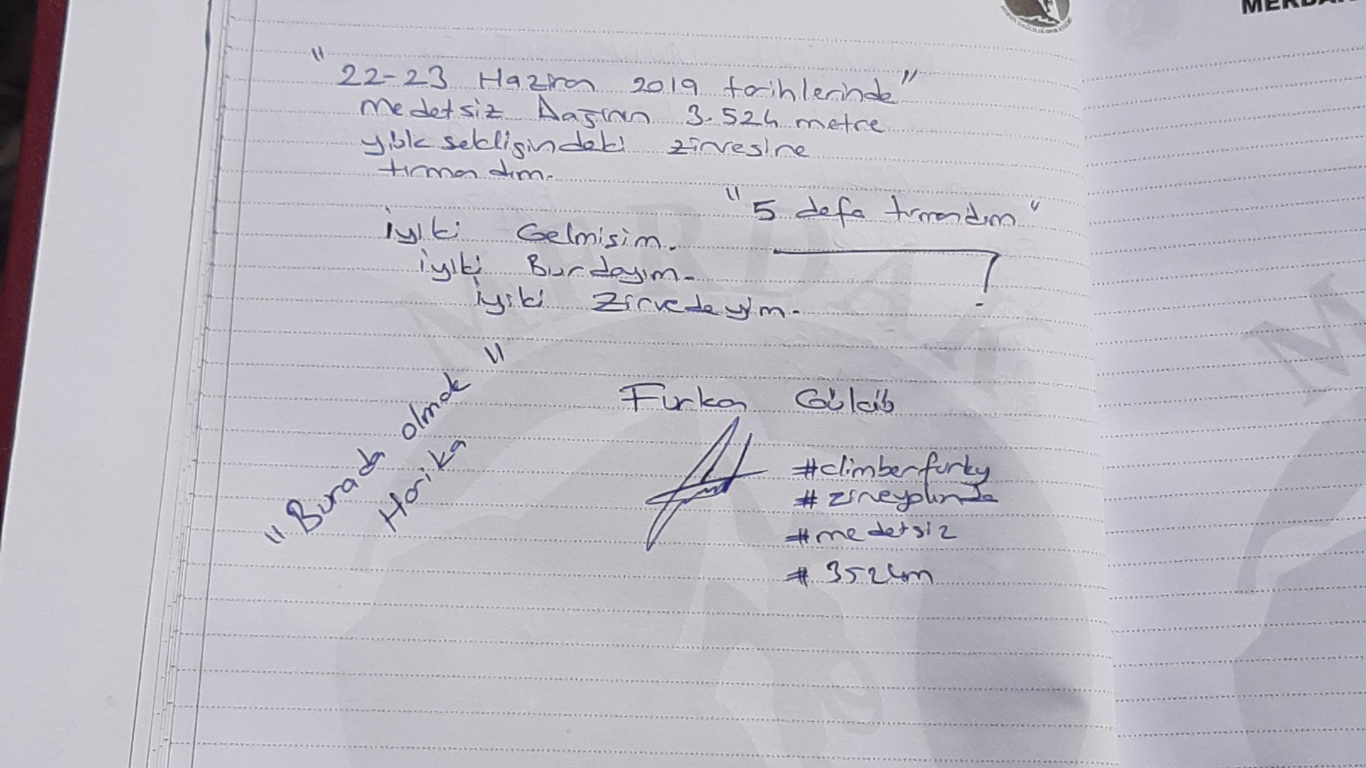 "22-23 Haziran 2019 tarihlerinde"
medetsiz Dağının 3.524 metre
yüksekliğindeki zirvesine
tırmandım.
"5 defa tırmandım"
iyiki Gelmişim.
iyiki Burdayım.
iyiki Zirvedeyim.
"Burada olmak"
Harika
Furkan
#climberfurky
#medetsiz
#3524m
MERDAK